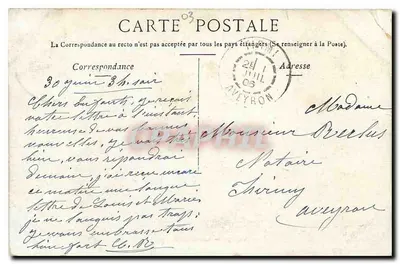 03
CARTE POSTALE
La Correspondance au recto n'est pas acceptée par tous les pays étrangers (Se renseigner à la Poste).
Correspondance
Adresse
AVEYRON
30 juin 3h. soir
Chers enfants, je reçois
votre lettre à l'instant
heureuse de vous
vous répondrai
demain, j'ai reçu encore
ce matin une longue
lettre de Louis et Marie
je ne languis pas trop;
je vous embrasse tous
bien fort
Madame
Monsieur Reclus
Notaire
aveyron